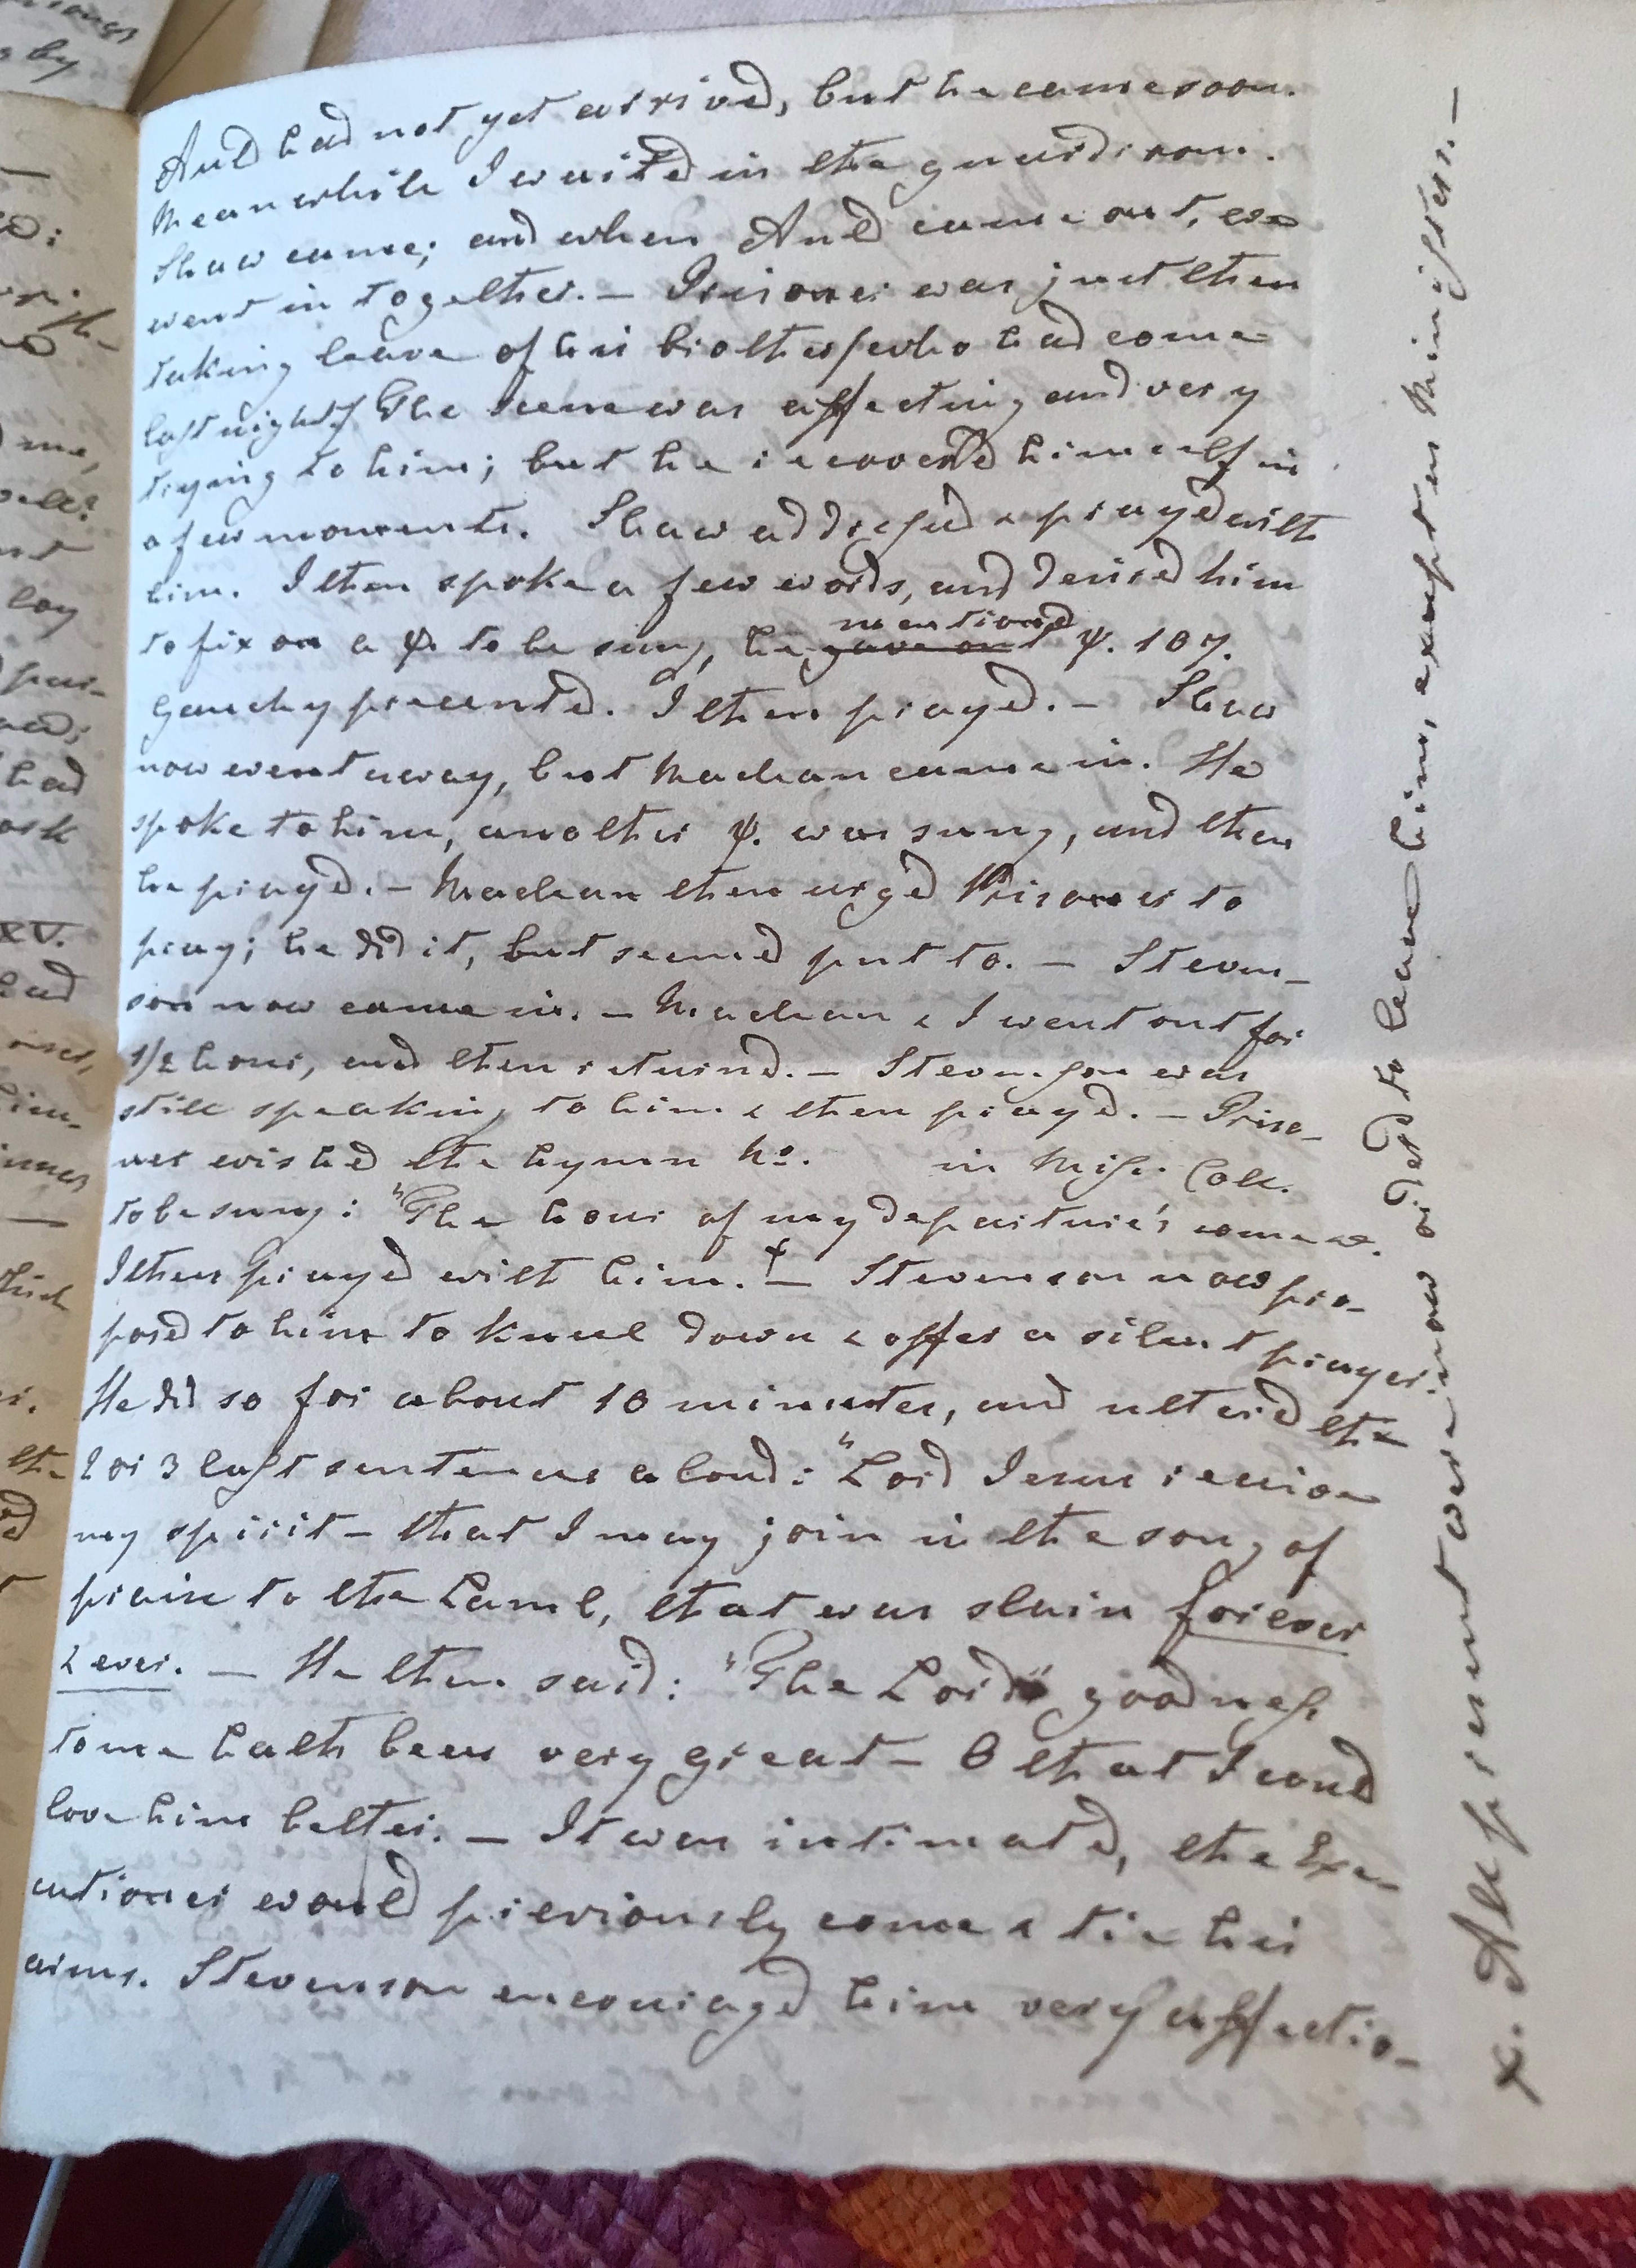 Auld had not yet arrived, but he came soon.
Meanwhile I waited in the guardroom.
Shaw came; and when Auld came out, we
went in together. — Prisoner was just then
taking leave of his brother (who had come
last night) The scene was affecting and very
trying to him; but he recovered himself in
a few moments. Shaw addressed & prayed with
him. I then spoke a few words, and desired him
to fix on a ψ. to be sung, he gave out mentioned ψ. 107.
precented. I then prayed. — Shaw
now went away, but Maclean came in. He
spoke to him, another ψ. was sung, and then
he prayed. — Maclean then urged Prisoner to
pray; he did it, but seemed put to. — Steven-
son now came in. — Maclean & I went out for
1/2 hour, and then returnd. — Stevenson was
still speaking to him & then prayed. — Priso-
ner wished the hymn No. in Miss. Coll.
to be sung: "The hour of my departure's come &.
I then prayed with him. x — Stevenson now pro-
posed to him to kneel down & offer a silent prayer.
He did so for about 10 minutes, and uttered the
2 or 3 last sentences aloud: "Lord Jesus receive
my spirit — that I may join in the song of
praise to the Lamb, that was slain forever
& ever. — He then said: "The Lord's goodness
to me hath been very great — O that I coud
love him better. — It was intimated, the Exe-
cutioner would previously come & tie his
arms. Stevenson encouraged him very affectio-
x. All present were now orderd to leave him, except us Ministers. —
songs
by
me,
lay
had
ask
XV.
had
the